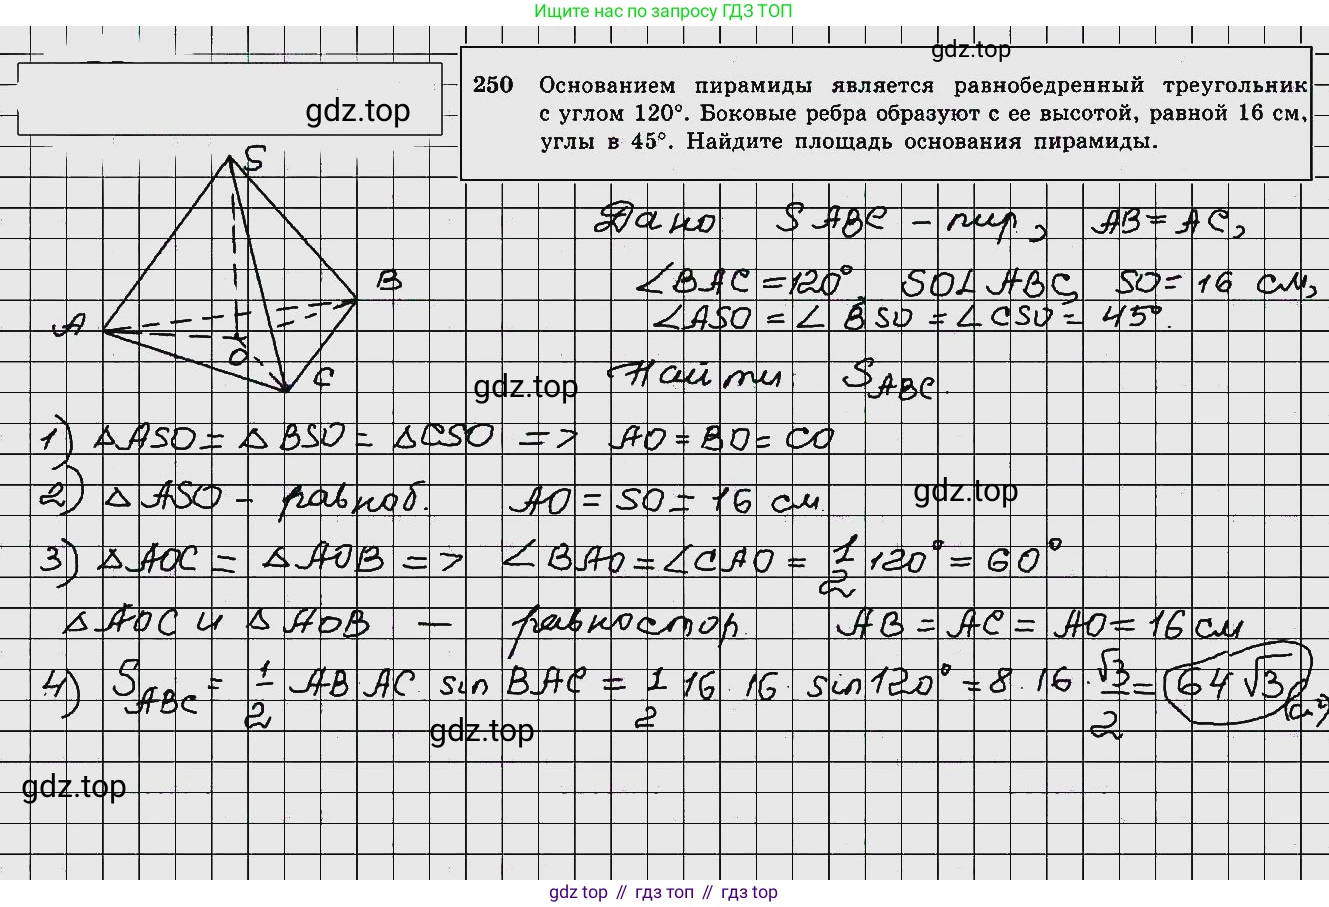 Ищите нас по запросу ГДЗ ТОП
gdz.top
gdz.top
250 Основанием пирамиды является равнобедренный треугольник
с углом 120°. Боковые ребра образуют с ее высотой, равной 16 см,
углы в 45°. Найдите площадь основания пирамиды.
S
A
B
O
C
Дано SABC - пир, AB = AC,
∠BAC = 120°, SO⊥ABC, SO = 16 см,
∠ASO = ∠BSO = ∠CSO = 45°.
Найти: S_ABC.
gdz.top
1) △ASO = △BSO = △CSO => AO = BO = CO
2) △ASO - равноб. AO = SO = 16 см
gdz.top
3) △AOC = △AOB => ∠BAO = ∠CAO = 1/2 120° = 60°
△AOC и △AOB — равностор. AB = AC = AO = 16 см
4) S_ABC = 1/2 AB AC sin BAC = 1/2 16 · 16 · sin 120° = 8 · 16 · √3/2 = 64√3 (см²)
gdz.top
gdz.top
gdz top // гдз топ // гдз top